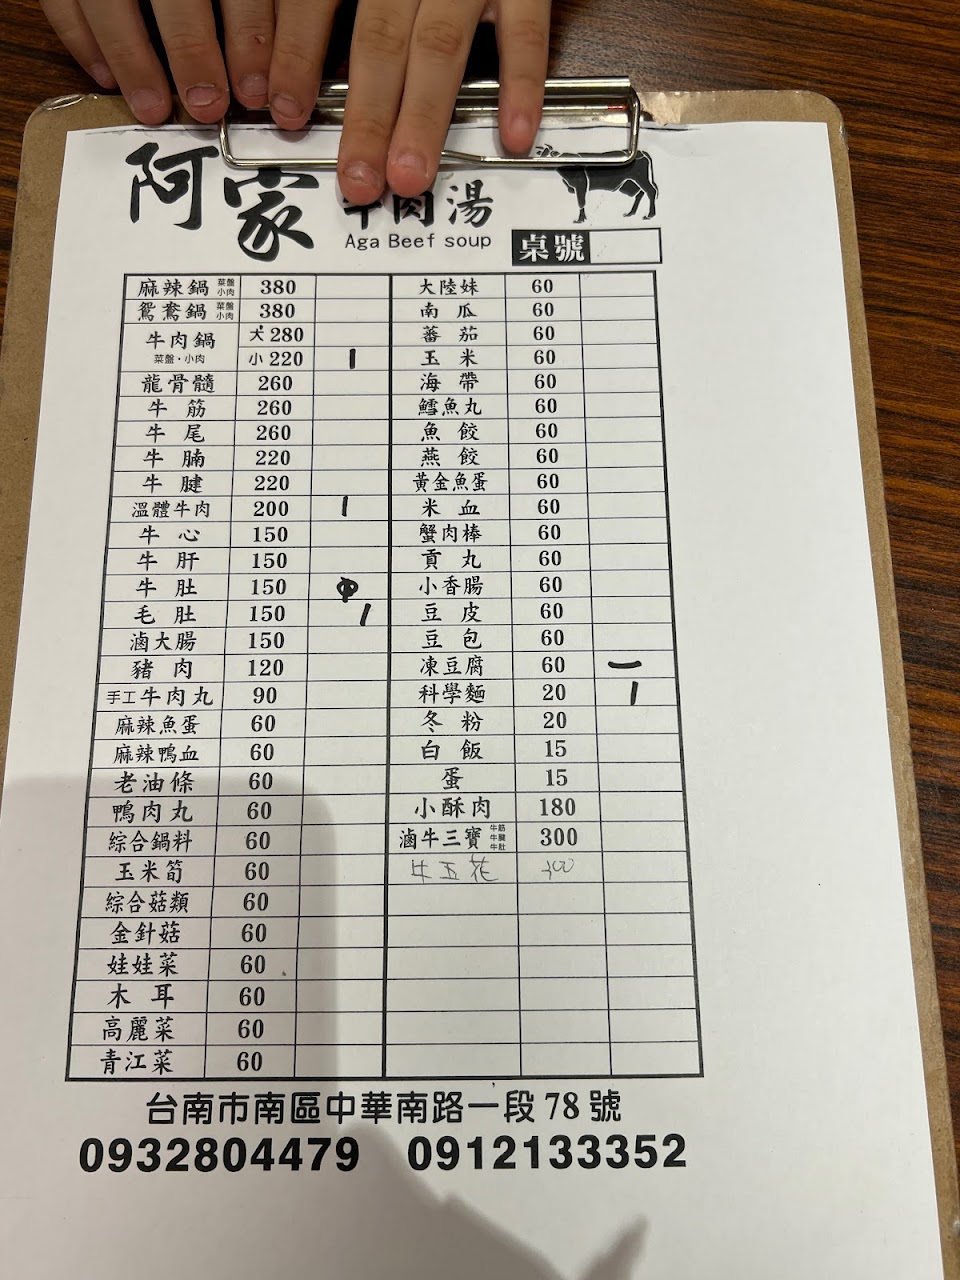 阿家牛肉湯
Aga Beef soup
桌號
麻辣鍋 菜盤 小肉 380
鴛鴦鍋 菜盤 小肉 380
牛肉鍋 菜盤・小肉 大 280
小 220 1
龍骨髓 260
牛筋 260
牛尾 260
牛腩 220
牛腱 220
溫體牛肉 200 1
牛心 150
牛肝 150
牛肚 150
毛肚 150 1
滷大腸 150
豬肉 120
手工牛肉丸 90
麻辣魚蛋 60
麻辣鴨血 60
老油條 60
鴨肉丸 60
綜合鍋料 60
玉米筍 60
綜合菇類 60
金針菇 60
娃娃菜 60
木耳 60
高麗菜 60
青江菜 60
大陸妹 60
南瓜 60
蕃茄 60
玉米 60
海帶 60
鱈魚丸 60
魚餃 60
燕餃 60
黃金魚蛋 60
米血 60
蟹肉棒 60
貢丸 60
小香腸 60
豆皮 60
豆包 60
凍豆腐 60 一
科學麵 20 1
冬粉 20
白飯 15
蛋 15
小酥肉 180
滷牛三寶 牛筋 牛腱 牛肚 300
牛五花 300
台南市南區中華南路一段78號
0932804479 0912133352